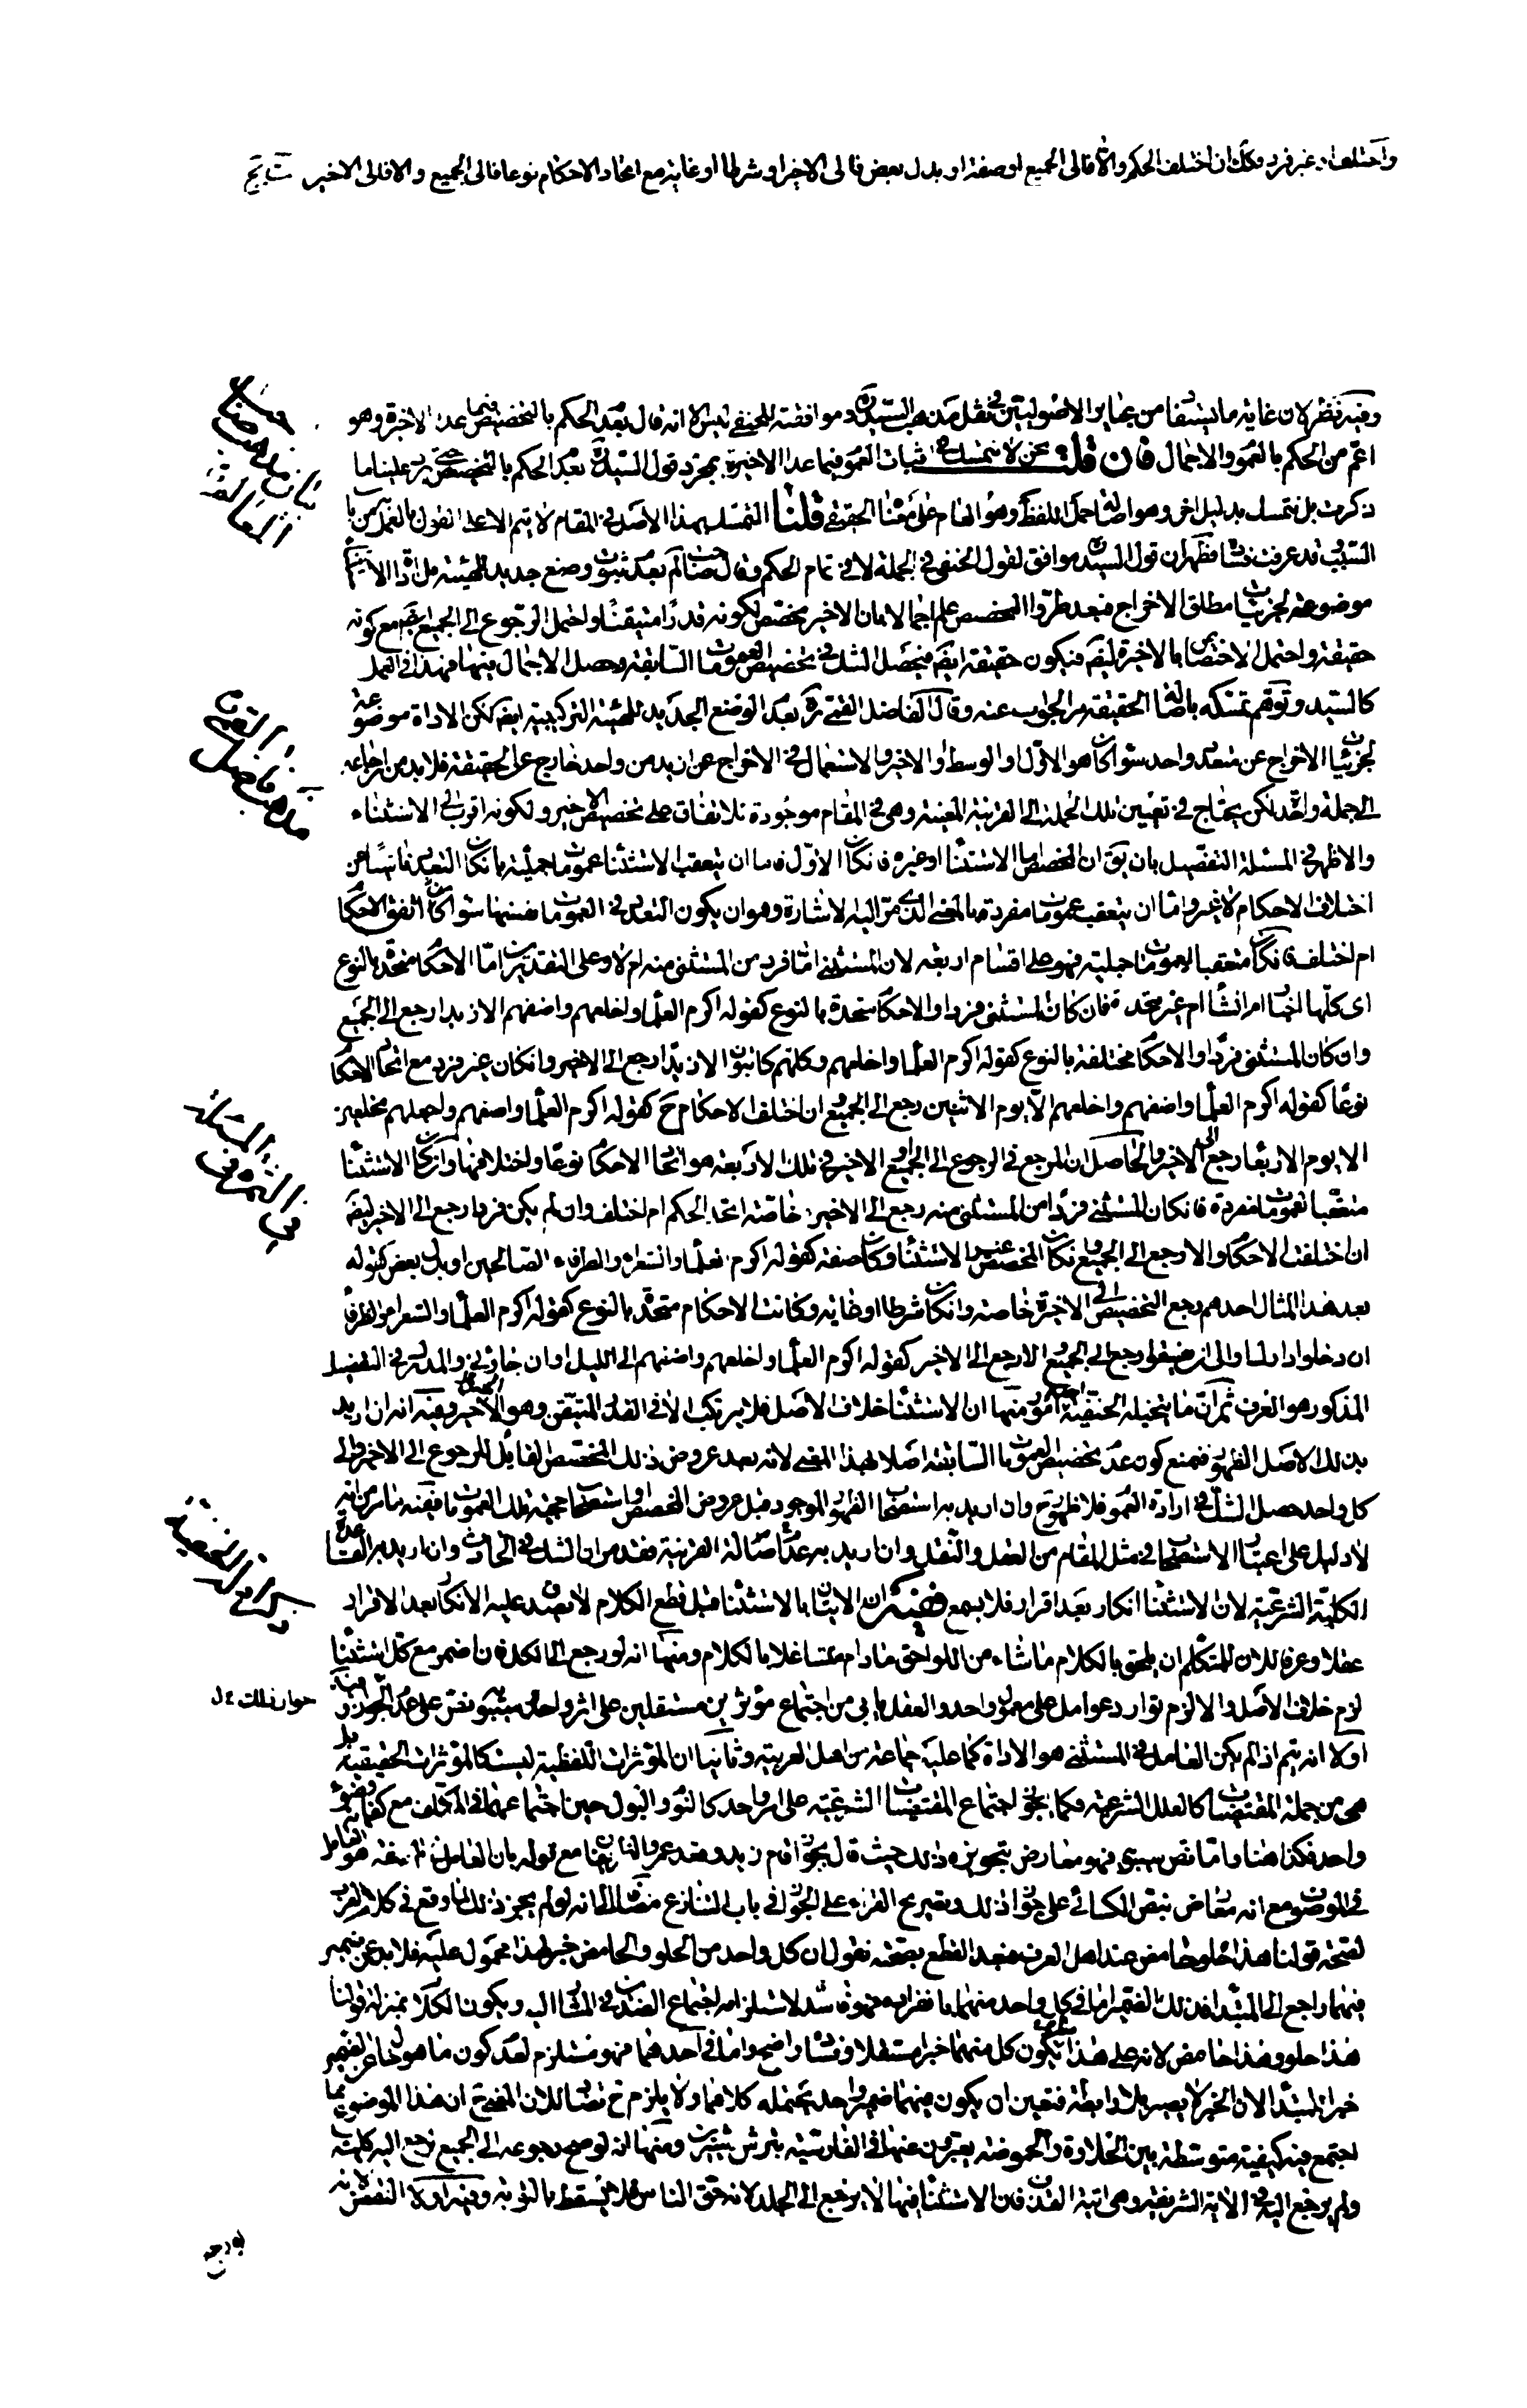 واختلف او غير فرد وكك ان اختلف الحكم والا فالى الجميع او صفة او بدل بعض فالى الاخير او شرطا او غاية مع اتحاد الاحكام نوعا فالى الجميع والا فالى الاخير
وفيه نظر لان غاية ما يستفاد من عباير الاصوليين في نقل مذهب السيد ره وموافقته للحنفي ليس الا انه قال بعدم الحكم بالتخصيص فيما عدا الاخيرة وهو
اعم من الحكم بالعموم والاجمال فان قلت نحن لا نتمسك في اثبات العموم فيما عدا الاخيرة بمجرد قول السيد ره بعدم الحكم بالتخصيص حتى يرد علينا ما
ذكرت بل نتمسك بدليل اخر وهو اصالة حمل اللفظ وهو العام على معناه الحقيقي قلنا التمسك بهذا الاصل في المقام لا يتم الا على القول بالعمل من باب
السبب وقد عرفت فساده فظهر ان قول السيد موافق لقول الحنفي في الجملة لا في تمام الحكم وقال صاحب لم بعدم ثبوت وضع جديد للهيئة بل اداة الاستثناء
موضوعة لجزئيات مطلق الاخراج فبعد طرو المخصص علم اجمالا بان الاخير مخصص لكونه قدرا متيقنا واحتمل الرجوع الى الجميع ايضا مع كونه
حقيقة واحتمل الاختصاص بالاخيرة ايضا فيكون حقيقة ايضا فيحصل الشك في تخصيص العمومات السابقة وحصل الاجمال فيها فهذا في العمل
كالسيد وتوهم تمسكه باصالة الحقيقة مر الجواب عنه وقال الفاضل القمي ره بعدم الوضع الجديد للهيئة التركيبية ايضا لكن الاداة موضوعة
لجزئيات الاخراج عن متعدد واحد سواء كان هو الاول او الوسط او الاخير والاستعمال في الاخراج عن ازيد من واحد خارج عن الحقيقة فلا بد من ارجاعه
الى جملة واحدة لكن يحتاج في تعيين تلك الجملة الى القرينة المعينة وهي في المقام موجودة للاتفاق على تخصيص الاخير ولكونه اقرب الى الاستثناء
والاظهر في المسئلة التفصيل بان يق ان المخصص اما الاستثناء او غيره فان كان الاول فاما ان يتعقب الاستثناء عمومات جملية بان كان التعدد ناشئا عن
اختلاف الاحكام لا غير واما ان يتعقب عمومات مفردة بالمعنى الذي مر اليه الاشارة وهو ان يكون التعدد في العمومات نفسها سواء كان اتفق الاحكام
ام اختلف فان كان متعقبا لعمومات جملية فهو على اقسام اربعة لان المستثنى اما فرد من المستثنى منه ام لا وعلى التقديرين اما الاحكام متحدة بالنوع
اى كلها اخبار ام انشاء ام غير متحدة فان كان المستثنى فردا والاحكام متحدة بالنوع كقوله اكرم العلماء واخلعهم واضفهم الا زيدا رجع الى الجميع
وان كان المستثنى فردا والاحكام مختلفة بالنوع كقوله اكرم العلماء واخلعهم وكلهم كاتبون الا زيدا رجع الى الاخير وان كان غير فرد مع اتحاد الاحكام
نوعا كقوله اكرم العلماء واضفهم واخلعهم الا يوم الاثنين رجع الى الجميع وان اختلف الاحكام ح كقوله اكرم العلماء واضفهم واجعلهم مخلعين
الا يوم الاربعاء رجع الى الاخير والحاصل ان المرجع في الرجوع الى الجميع او الاخير في تلك الاربعة هو اتحاد الاحكام نوعا واختلافها وان كان الاستثناء
متعقبا لعمومات مفردة فان كان المستثنى فردا من المستثنى منه رجع الى الاخير خاصة اتحد الحكم ام اختلف وان لم يكن فردا رجع الى الاخير ايضا
ان اختلفت الاحكام والا رجع الى الجميع وان كان المخصص غير الاستثناء وكان صفة كقوله اكرم العلماء والشعراء والظرفاء الصالحين او بدل بعض كقوله
بعد هذا المثال احدهم رجع التخصيص الى الاخيرة خاصة وان كان شرطا او غاية وكانت الاحكام متحدة بالنوع كقوله اكرم العلماء والشعراء والظرفاء
ان دخلوا دارنا والى ان يفسقوا رجع الى الجميع والا رجع الى الاخير كقوله اكرم العلماء واخلعهم واضفهم الى الليل او ان جاؤني والمدرك في التفصيل
المذكور هو العرف ثم ان ما يتخيله الحنفية امور منها ان الاستثناء خلاف الاصل فلا يرتكب الا في القدر المتيقن وهو الاخير وفيه انه ان اريد
بذلك الاصل الظهور فنمنع كون عدم تخصيص العمومات السابقة اصلا بهذا المعنى لانه بعد عروض ذلك المخصص القابل للرجوع الى الاخير والى
كل واحد حصل الشك في ارادة العموم فلا ظهور ح وان اريد به استصحاب الظهور الموجود قبل عروض المخصص او استصحاب حجية تلك العمومات ففيه ما مر من انه
لا دليل على اعتبار الاستصحاب في مثل المقام من العقل والنقل وان اريد به عدم اصالة القرينة فقد مر ان الشك في الحادث وان اريد به القاعدة
الكلية الشرعية لان الاستثناء انكار بعد اقرار فلا يسمع ففيه ان الاتيان بالاستثناء قبل قطع الكلام لا يصدق عليه الانكار بعد الاقرار
عقلا وعرفا لان للمتكلم ان يلحق بالكلام ما شاء من اللواحق ما دام متشاغلا بالكلام ومنها انه لو رجع الى الكل فان اضمر مع كل استثناء
لزم خلاف الاصل والا لزم توارد عوامل على معمول واحد والعقل يابى من اجتماع مؤثرين مستقلين على اثر واحد وسيبويه نص على عدم الجواز وفيه
اولا انه يتم اذا لم يكن العامل في المستثنى هو الاداة كما عليه جماعة من اهل العربية وثانيا ان المؤثرات اللفظية ليست كالمؤثرات الحقيقية بل
هى من جملة المقتضيات كالعلل الشرعية فكما يجوز اجتماع المقتضيات الشرعية على امر واحد كالنوم والبول حين اجتماعهما في المكلف مع كفاية وضوء
واحد فكذا هنا واما نص سيبويه فهو معارض بتجويزه ذلك حيث قال يجوز قام زيد وقعد عمرو الظريفان مع قوله بان العامل في الصفة هو العامل
في الموصوف مع انه معارض بنص الكسائى على جواز ذلك وتصريح الفراء على الجواز في باب التنازع مضافا الى انه لو لم يجز ذلك لما وقع في كلام العرب
لصحة قولنا هذا حلو حامض عند اهل العرف فبعد القطع بصحته نقول ان كل واحد من الحلو والحامض خبر لهذا محمول عليه فلا بد من ضمير
فيهما راجع الى المبتدا فذلك الضمير اما في كل واحد منهما بانفراده فهو فاسد لاستلزامه اجتماع الضدين في المشار اليه ويكون الكلام بمنزلة قولنا
هذا حلو وهذا حامض لانه على هذا يكون كل منهما خبرا مستقلا وفساده واضح واما في احدهما فهو مستلزم لعدم كون ما هو خال عن الضمير
خبرا للمبتدا لان الخبر لا يصير بلا رابطة فتعين ان يكون فيهما ضمير واحد يحتمله كلاهما ولا يلزم ح فساد لان المعنى ح ان هذا الموضوع مما
اجتمع فيه كيفية متوسطة بين الحلاوة والحموضة يعبرون عنها في الفارسية بترش شيرين ومنها انه لو صح رجوعه الى الجميع لرجع اليه كلية
ولم يرجع اليه في الاية الشريفة وهى اية القذف فان الاستثناء فيها لا يرجع الى الجلد لانه حق الناس فلا يسقط بالتوبة وفيه اولا النقض لانه
في الثمرة في المسئلة